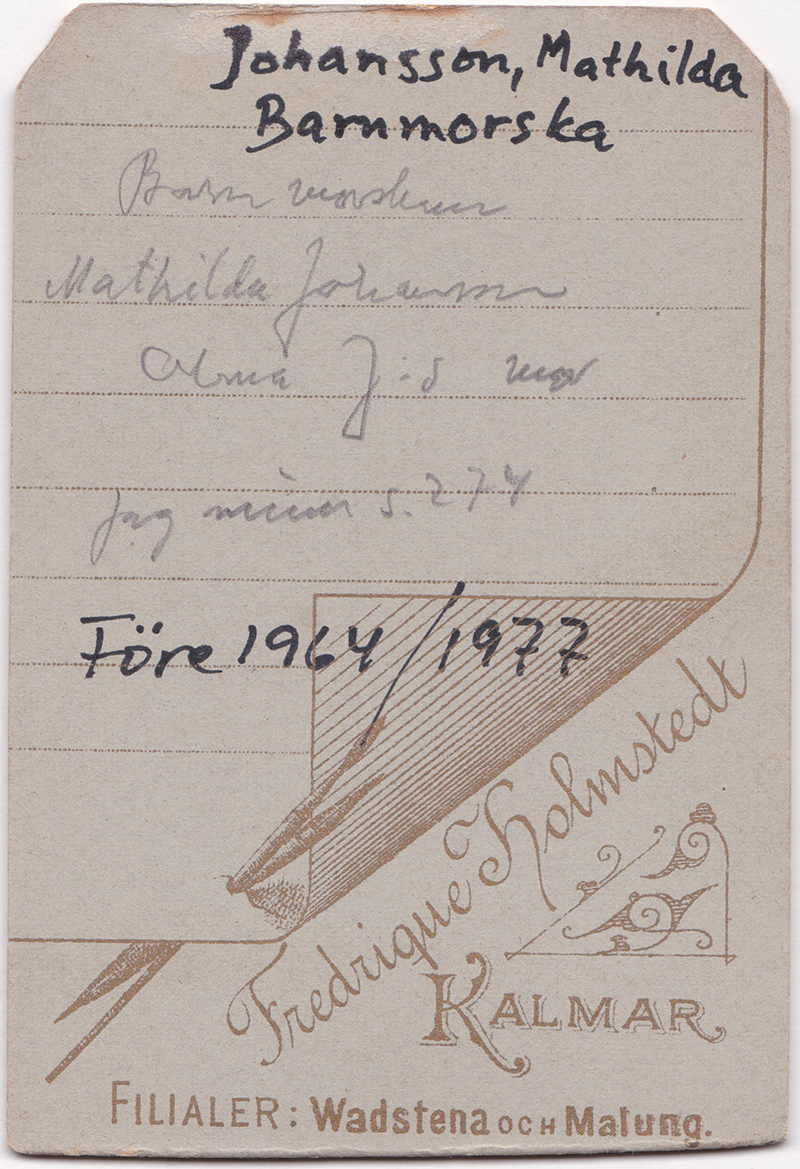 Johansson, Mathilda
Barnmorska
Barnmorskan
Mathilda Johansson
Alma J:s mor
Jag minns s. 274
Före 1964/1977
Fredrique Holmstedt
KALMAR
FILIALER: Wadstena OCH Malung.